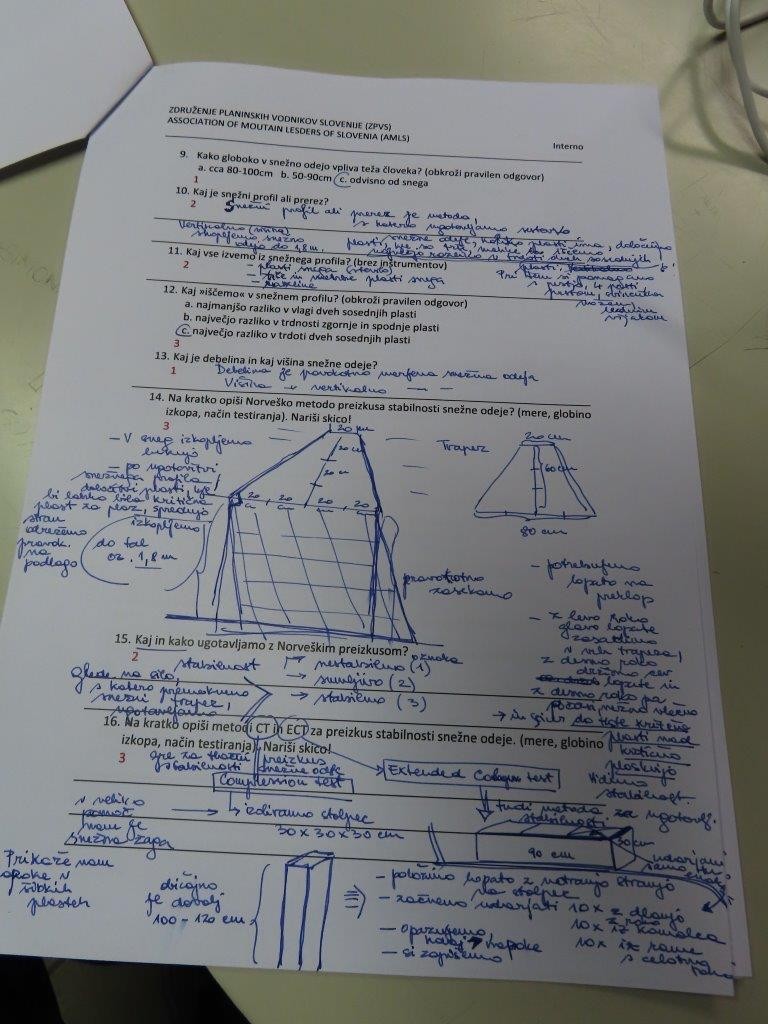 ZDRUŽENJE PLANINSKIH VODNIKOV SLOVENIJE (ZPVS)
ASSOCIATION OF MOUTAIN LESDERS OF SLOVENIA (AMLS)
Interno
9. Kako globoko v snežno odejo vpliva teža človeka? (obkroži pravilen odgovor)
a. cca 80-100cm b. 50-90cm c. odvisno od snega
1
10. Kaj je snežni profil ali prerez?
2
Snežni profil ali prerez je metoda,
s katero ugotavljamo sestavo
snežne odeje, koliko plasti ima, določimo
plasti, kje so
največjo razliko v trdoti dveh sosednjih
plasti.
Vertikalno
skopljemo snežno
odejo do 1,8 m.
11. Kaj vse izvemo iz snežnega profila? (brez inštrumentov)
2
- plasti snega
plasti snega
Pri tem si pomagamo
s pestjo, 4 prsti
prstom, svinčnikom
nožem,
lednim
vijakom
12. Kaj »iščemo« v snežnem profilu? (obkroži pravilen odgovor)
a. najmanjšo razliko v vlagi dveh sosednjih plasti
b. največjo razliko v trdnosti zgornje in spodnje plasti
c. največjo razliko v trdoti dveh sosednjih plasti
3
13. Kaj je debelina in kaj višina snežne odeje?
1
Debelina je pravokotno merjena snežna odeja
Višina → vertikalno — —
14. Na kratko opiši Norveško metodo preizkusa stabilnosti snežne odeje? (mere, globino
izkopa, način testiranja). Nariši skico!
3
- V sneg izkopljemo
luknjo
- po ugotovitvi
snežnega profila,
določitvi plasti, kje
bi lahko bila kritična
plast za plaz, spredaj
izkopljemo
stran
odrežemo
pravok.
na
podlago
do tal
oz. 1,8 m
20 cm
20 cm
20 cm
20 cm
20 cm
20 cm
20 cm
pravokotno
zasekamo
Trapez
20 cm
60 cm
80 cm
- potrebujemo
lopato na
preklop
- z levo roko
glavo lopate
zasadimo
v vrh trapeza,
z desno roko
držimo
lopate in
z desno roko pa
15. Kaj in kako ugotavljamo z Norveškim preizkusom?
2
stabilnost
oznaka
→ nestabilno (1)
→ sumljivo (2)
→ stabilno (3)
glede na silo,
s katero premaknemo
snežni trapez,
ugotavljamo
plasti nad
kritično
ploskvijo
Vidimo
stabilnost.
16. Na kratko opiši metodi CT in ECT za preizkus stabilnosti snežne odeje. (mere, globino
izkopa, način testiranja). Nariši skico!
3
gre za
preizkus
stabilnosti
snežne odeje
Compression test
→ izdiramo stolpec
30 x 30 x 30 cm
v veliko
pomoč
nam je
snežna žaga
Extended test
tudi metoda za ugotovlj.
stabilnosti.
90 cm
30 cm
udarjamo
samo na
Prikaže nam
v
šibkih
plasteh
običajno
je dovolj
100 - 120 cm
- položimo lopato z notranjo stranjo
na stolpec
- začnemo udarjati 10x z dlanjo
z roko
10x iz komolca
10x iz rame
s celotno
roko
- opazujemo
kdaj
- si zapišemo